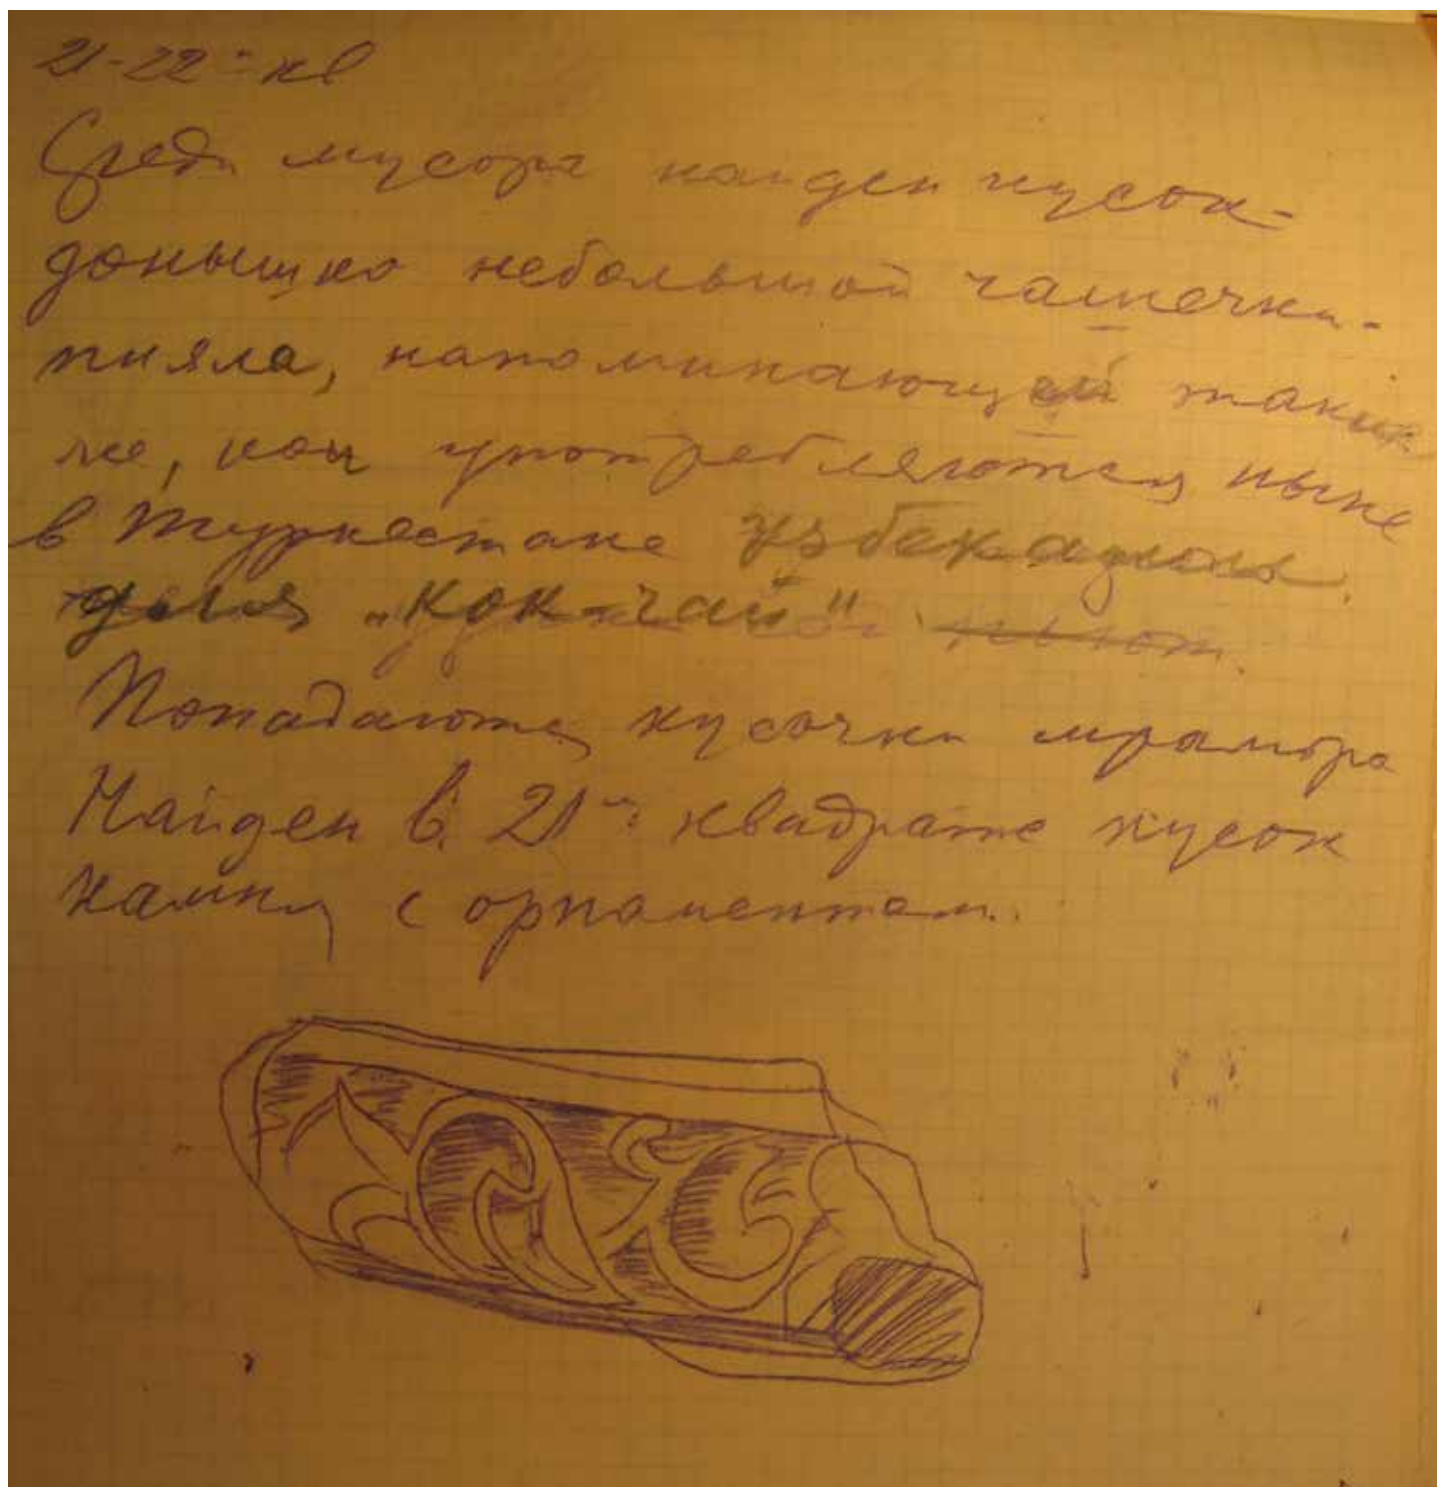 21-22-й кв
Среди мусора найден кусок-
донышко небольшой чашечки-
пияла, напоминающей такие
же, как употребляются ныне
в Туркестане узбеками
для „кок-чай" пьют.
Попадаются кусочки мрамора
Найден в 21-м квадрате кусок
камня с орнаментом.